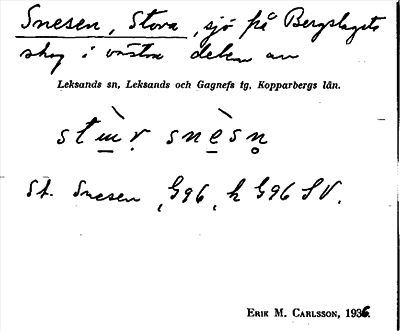 Snesen, Stora, sjö på Bergslagets
skog i västra delen av
Leksands sn, Leksands och Gagnefs tg, Kopparbergs län.
snèsn
St. Snesen, G96, k G96 SV.
ERIK M. CARLSSON, 1936.